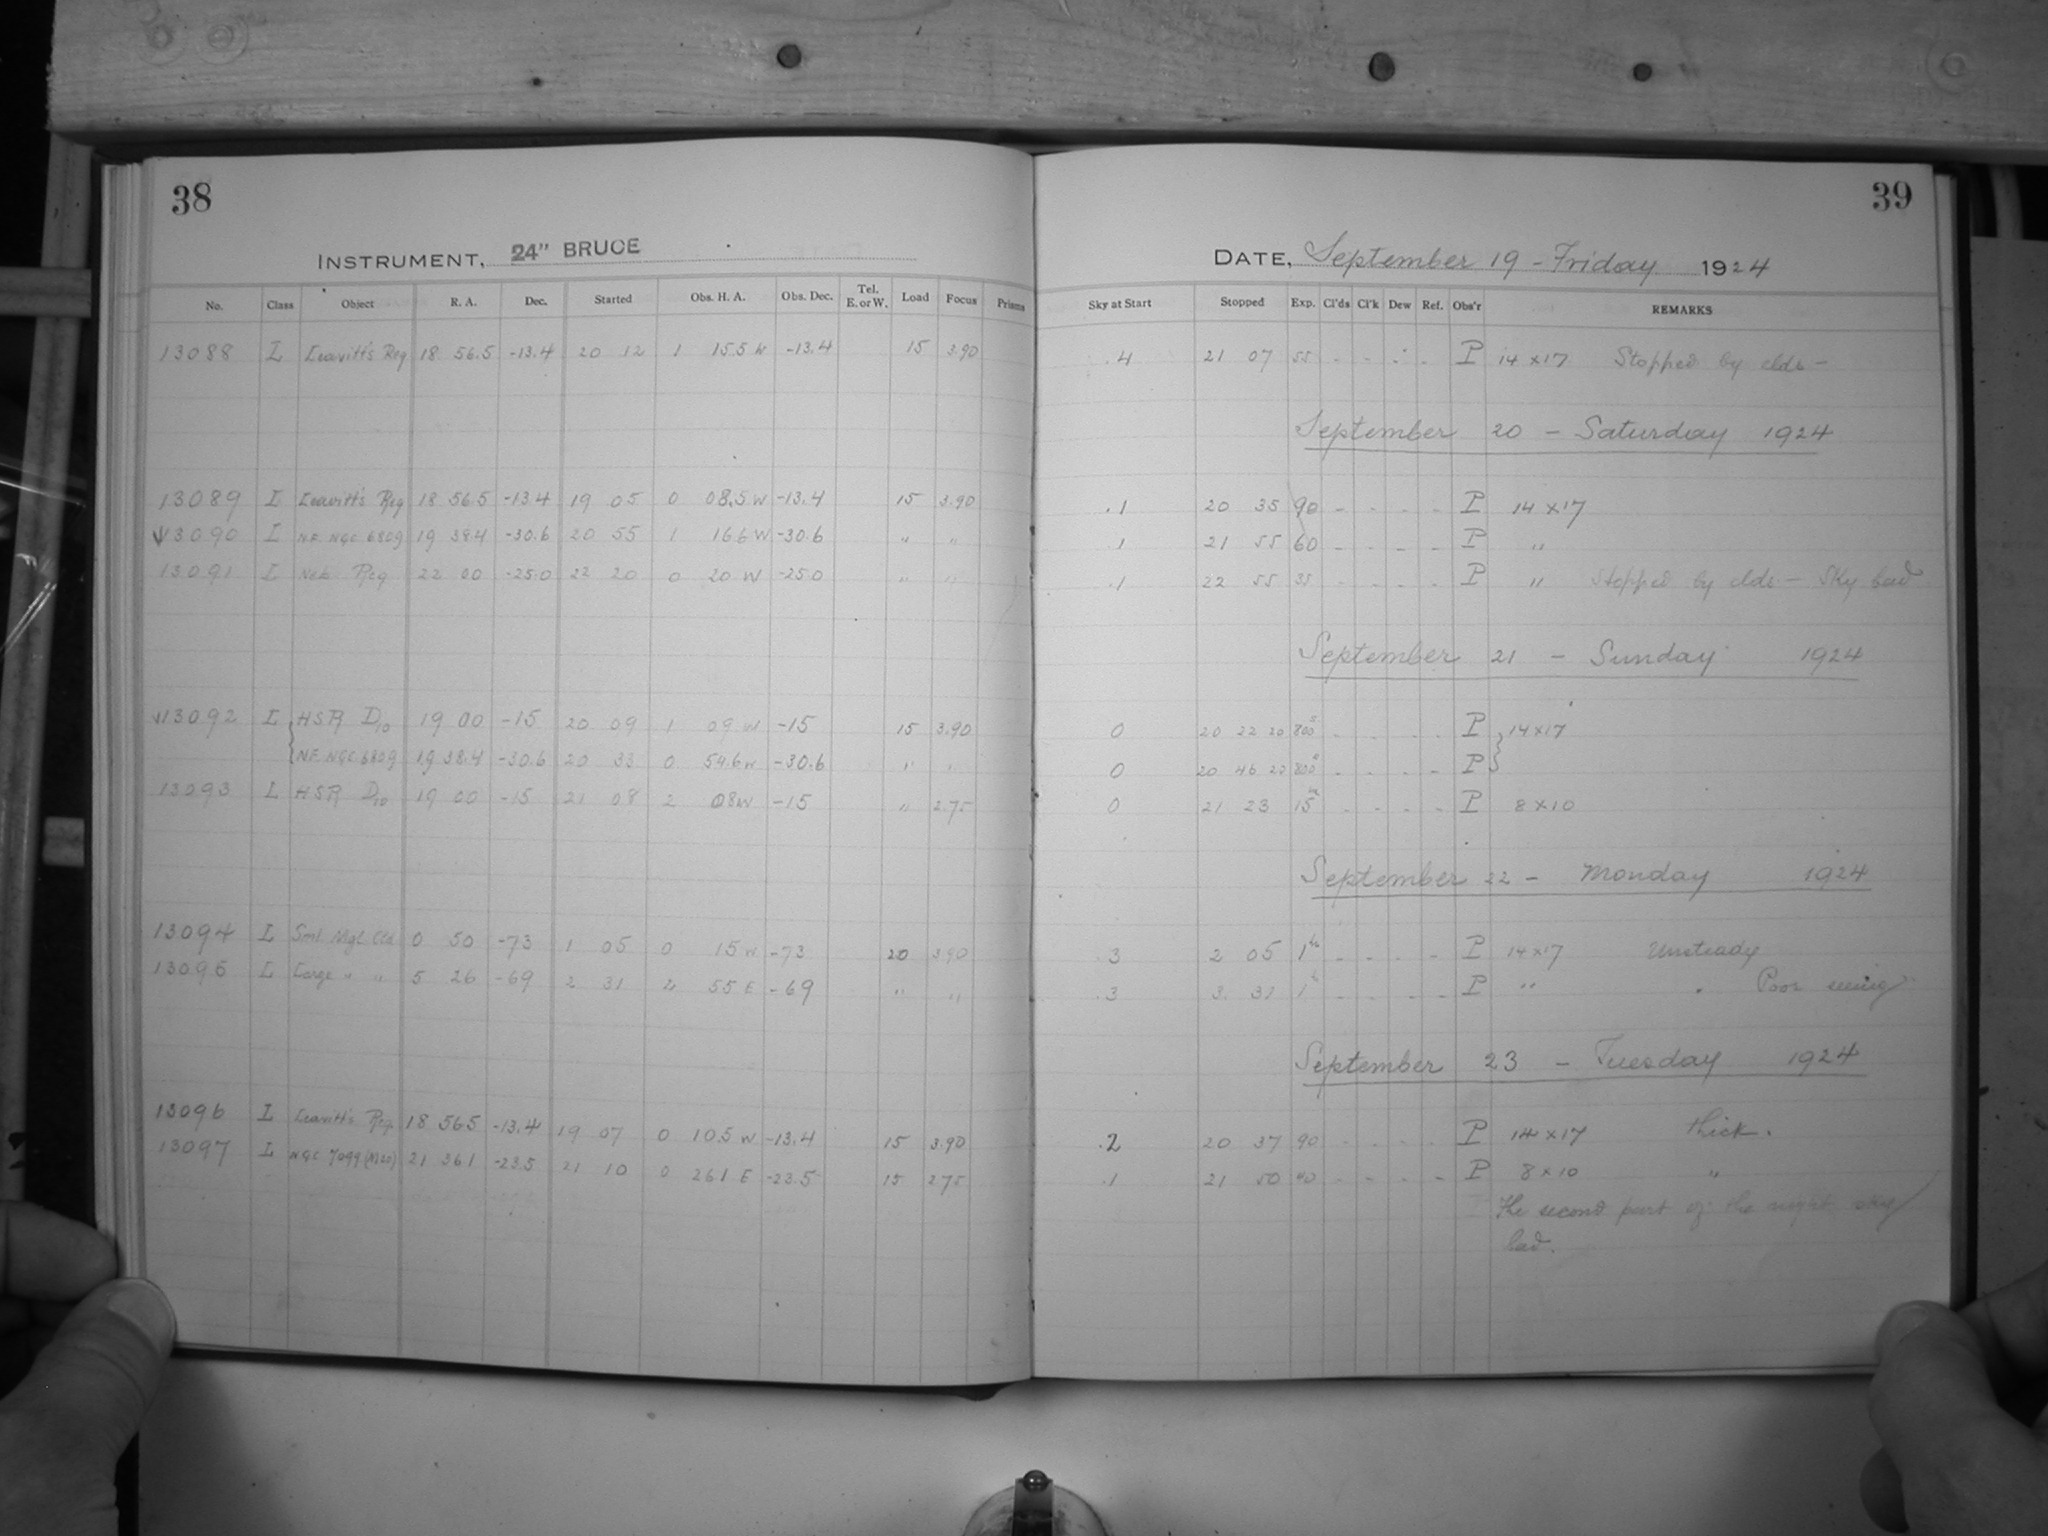 38
INSTRUMENT, 24" BRUCE
No. Class Object R. A. Dec. Started Obs. H. A. Obs. Dec. Tel. E. or W. Load Focus Prisms
13088 I Leavitt's Reg 18 56.5 -13.4 20 12 1 15.5 W -13.4 15 3.90
13089 I Leavitt's Reg 18 56.5 -13.4 19 05 0 08.5 W -13.4 15 3.90
13090 I N.F. NGC 6809 19 38.4 -30.6 20 55 1 16.6 W -30.6 " "
13091 I Neb. Reg 22 00 -25.0 22 20 0 20 W -25.0 " "
13092 I HSR D10 19 00 -15 20 09 1 09 W -15 15 3.90
N.F. NGC 6809 19 38.4 -30.6 20 33 0 54.6 W -30.6 " "
13093 I HSR D10 19 00 -15 21 08 2 08 W -15 " 2.75
13094 I Sml Mgl Cld 0 50 -73 1 05 0 15 W -73 20 3.90
13095 I Large " " 5 26 -69 2 31 2 55 E -69 " "
13096 I Leavitt's Reg 18 56.5 -13.4 19 07 0 10.5 W -13.4 15 3.90
13097 I NGC 7099 21 36.1 -23.5 21 10 0 26.1 E -23.5 15 2.75
39
DATE, September 19 - Friday 1924
Sky at Start Stopped Exp. Cl'ds Cl'k Dew Ref. Obs'r REMARKS
.4 21 07 55 - - - - P 14 x 17 Stopped by clds -
September 20 - Saturday 1924
.1 20 35 90 - - - - P 14 x 17
.1 21 55 60 - - - - P "
.1 22 55 35 - - - - P " Stopped by clds - Sky bad
September 21 - Sunday 1924
0 20 22 20 800s - - - - P 14 x 17
0 20 46 20 800s - - - - P
0 21 23 15m - - - - P 8 x 10
September 22 - Monday 1924
.3 2 05 1h - - - - P 14 x 17 Unsteady
.3 3 31 1h - - - - P " " Poor seeing
September 23 - Tuesday 1924
.2 20 37 90 - - - - P 14 x 17 thick.
.1 21 50 40 - - - - P 8 x 10 "
The second part of the night
bad.